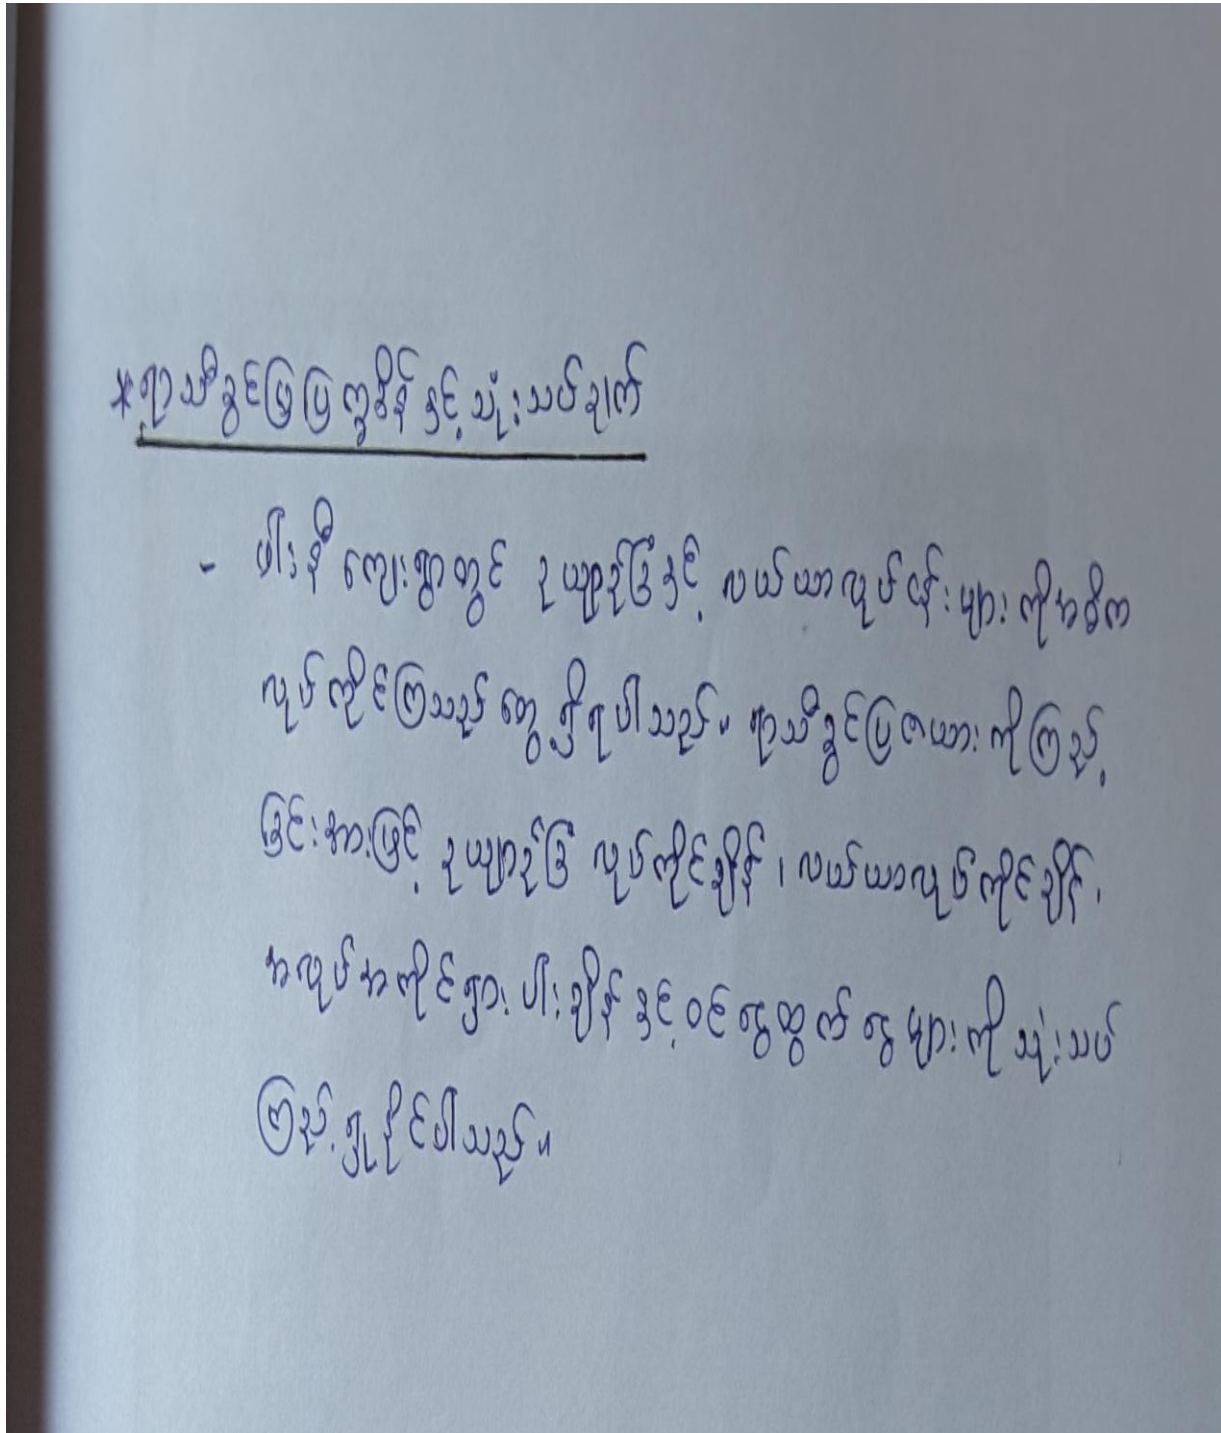 * ရာသီခွင်ပြပြက္ခဒိန်နှင့်သုံးသပ်ချက်
- ပါးနီကျေးရွာတွင် ဥယျာဉ်ခြံနှင့် လယ်ယာလုပ်ငန်းများကိုအဓိက
လုပ်ကိုင်ကြသည်တွေ့ရှိရပါသည်။ ရာသီခွင်ပြဇယားကိုကြည့်
ခြင်းအားဖြင့် ဥယျာဉ်ခြံ လုပ်ကိုင်ချိန်၊ လယ်ယာလုပ်ကိုင်ချိန်၊
အလုပ်အကိုင်ရှားပါးချိန်နှင့်ဝင်ငွေထွက်ငွေများကိုသုံးသပ်
ကြည့်ရှုနိုင်ပါသည်။